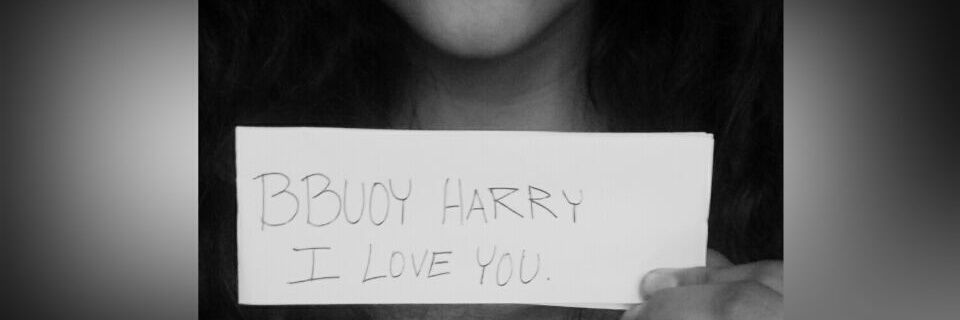 BBUOY HARRY
I LOVE YOU.